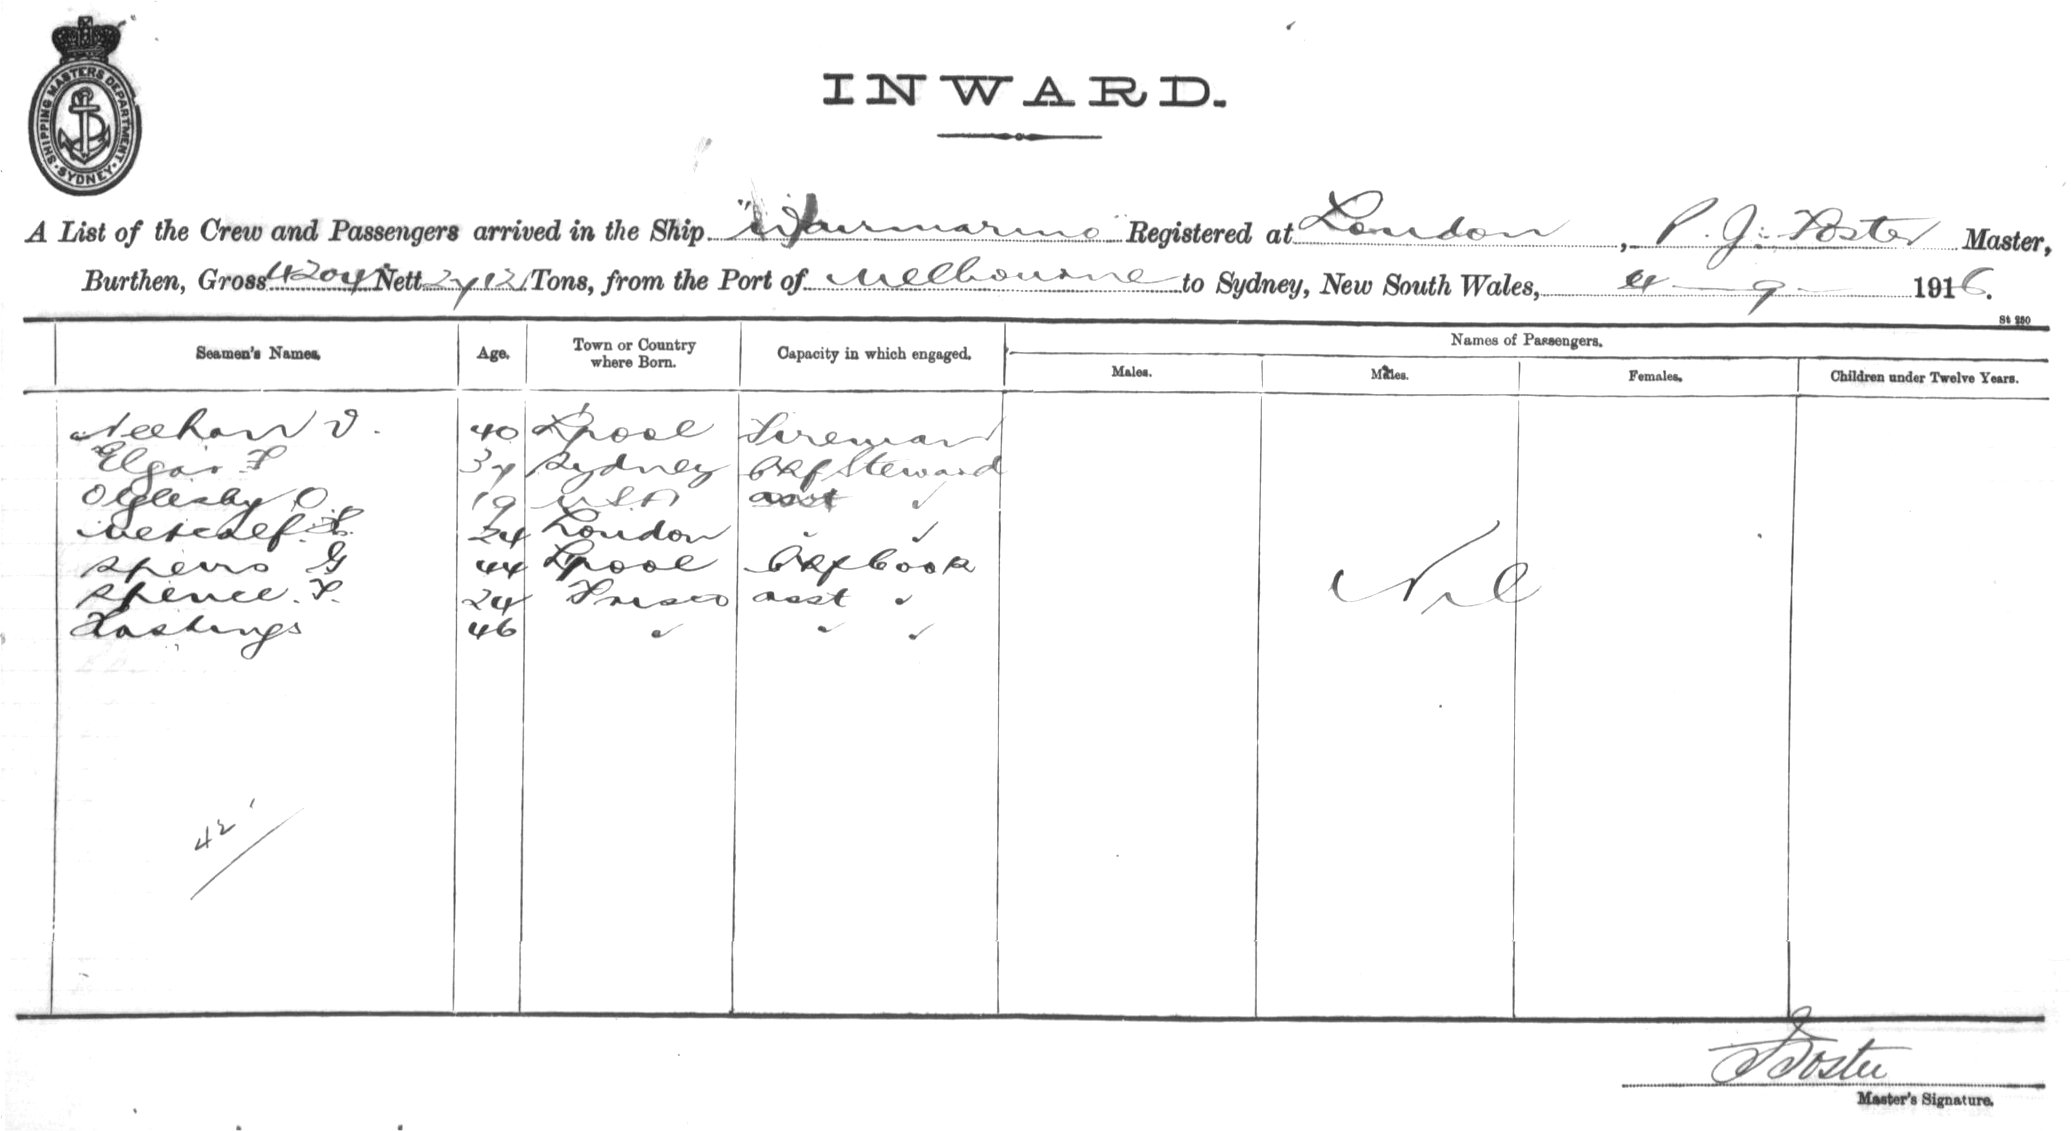 SHIPPING MASTERS DEPARTMENT · SYDNEY ·
INWARD.
A List of the Crew and Passengers arrived in the Ship "Waimarino" Registered at London, P. J. Foster Master,
Burthen, Gross 4204 Nett 2712 Tons, from the Port of Melbourne to Sydney, New South Wales, 4 - 9 - 1916.
St 280
Seamen's Names. Age. Town or Country where Born. Capacity in which engaged. Names of Passengers.
Males. Males. Females. Children under Twelve Years.
Meehan V. 40 Lpool Fireman
Elgar F 37 Sydney Chf Steward
Oglesby O 19 USA asst ✓
Metcalf 24 London " ✓
Spens G 44 Lpool Chf Cook
Spence. F. 24 Frisco asst ✓
Hastings 46 ✓ ✓ ✓
Nil
42
Foster
Master's Signature.